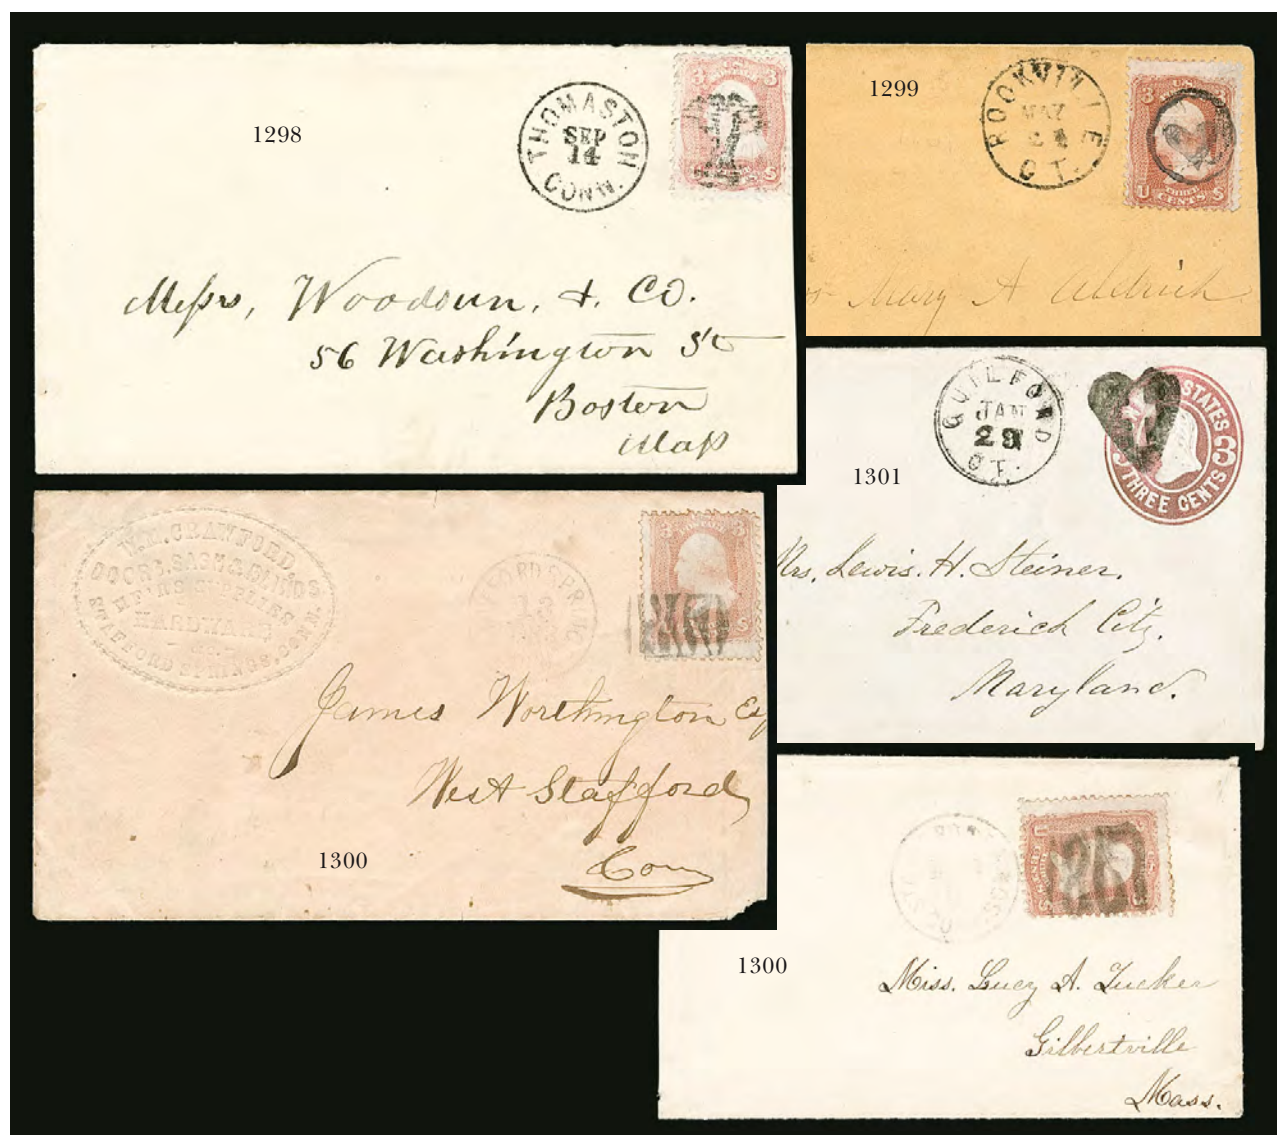 1298
THOMASTON
SEP
14
CONN.
3 3
S
Messrs, Woodsun, & Co.
56 Washington St
Boston
Mass
1299
ROCKVILLE
MAY
CT.
3 3
U S
THREE
CENTS
Mary A Aldrich
1301
GUILFORD
JAN
29
CT.
STATES
3
THREE CENTS
Mrs. Lewis. H. Steiner.
Frederick City.
Maryland.
WM. CRAWFORD
DOORS, SASH & BLINDS
MF'RS SUPPLIES
HARDWARE
&c.
STAFFORD SPRINGS, CONN.
FORD SPRING
13
3 3
S
James Worthington Esq
West Stafford
Con
1300
1300
Miss. Lucy A. Tucker
Gilbertville
Mass.